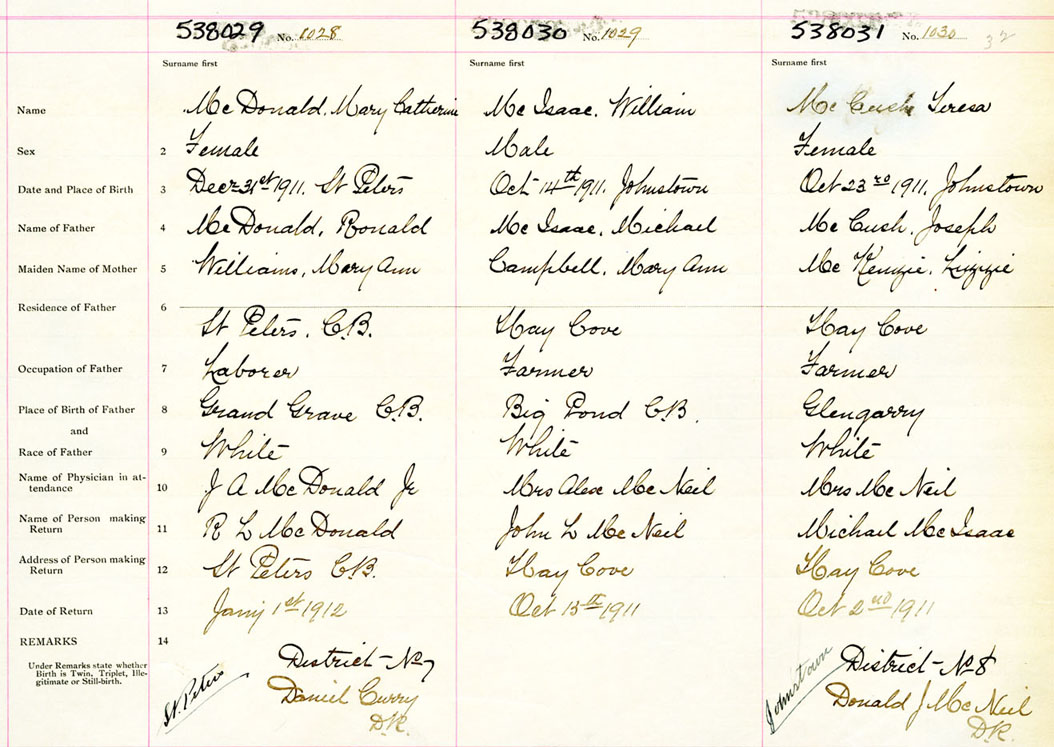 538029 No. 1028 538030 No. 1029 538031 No. 1030 32
Surname first Surname first Surname first
Name Mc Donald, Mary Catherine Mc Isaac, William Mc Cush Teresa
Sex 2 Female Male Female
Date and Place of Birth 3 Decr 31st 1911, St Peters Oct 14th 1911, Johnstown Oct 23rd 1911, Johnstown
Name of Father 4 Mc Donald, Ronald Mc Isaac, Michael Mc Cush, Joseph
Maiden Name of Mother 5 Williams, Mary Ann Campbell, Mary Ann Mc Kenzie, Lizzie
Residence of Father 6
St Peters, C.B. Hay Cove Hay Cove
Occupation of Father 7 Laborer Farmer Farmer
Place of Birth of Father 8 Grand Grave C.B. Big Pond C.B. Glengarry
and
Race of Father 9 White White White
Name of Physician in at-
tendance 10 J A Mc Donald Jr Mrs Alex Mc Neil Mrs Mc Neil
Name of Person making
Return 11 R L Mc Donald John L Mc Neil Michael Mc Isaac
Address of Person making
Return 12 St Peters C.B. Hay Cove Hay Cove
Date of Return 13 Jany 1st 1912 Oct 15th 1911 Oct 2nd 1911
REMARKS 14
Under Remarks state whether
Birth is Twin, Triplet, Ille-
gitimate or Still-birth.
St. Peters District No 7 Johnstown District No 8
Daniel Curry Donald J Mc Neil
D.R. D.R.